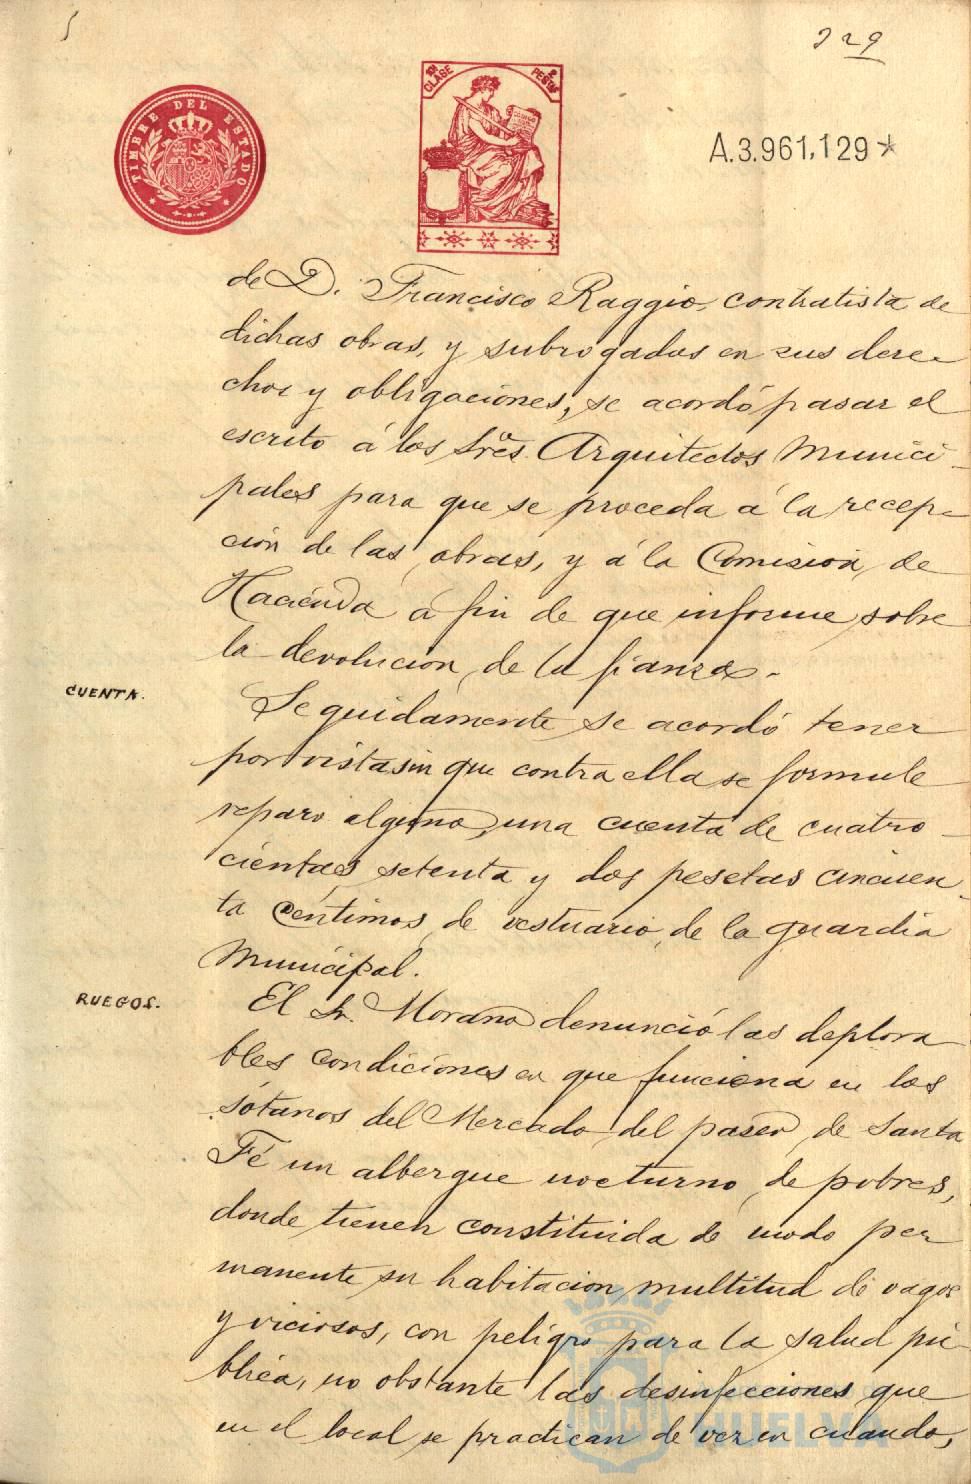 229
TIMBRE DEL ESTADO
CLASE
PESETAS
A.3.961,129*
de D. Francisco Raggio, contratista de
dichas obras, y subrogados en sus dere-
chos y obligaciones, se acordó pasar el
escrito á los Sres. Arquitectos Munici-
pales para que se proceda á la recep-
ción de las obras, y á la Comisión de
Hacienda á fin de que informe sobre
la devolución de la fianza.
CUENTA.
Seguidamente se acordó tener
por vista sin que contra ella se formule
reparo alguno, una cuenta de cuatro-
cientas setenta y dos pesetas cincuen-
ta céntimos de vestuario de la guardia
Municipal.
RUEGOS.
El Sr. Morano denunció las deplora
bles condiciones en que funciona en los
sótanos del Mercado del paseo de Santa
Fé un albergue nocturno de pobres,
donde tienen constituida de modo per
manente su habitación multitud de vagos
y viciosos, con peligro para la salud pú-
blica, no obstante las desinfecciones que
en el local se practican de vez en cuando,
HUELVA